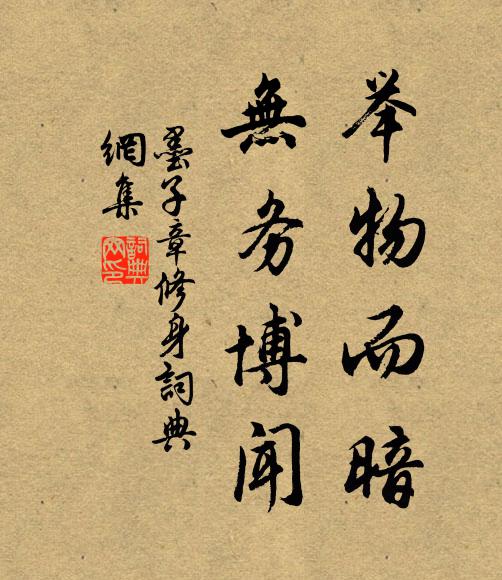 举物而暗
無务博闻
墨子章修身詞典
網集
詞典
网印